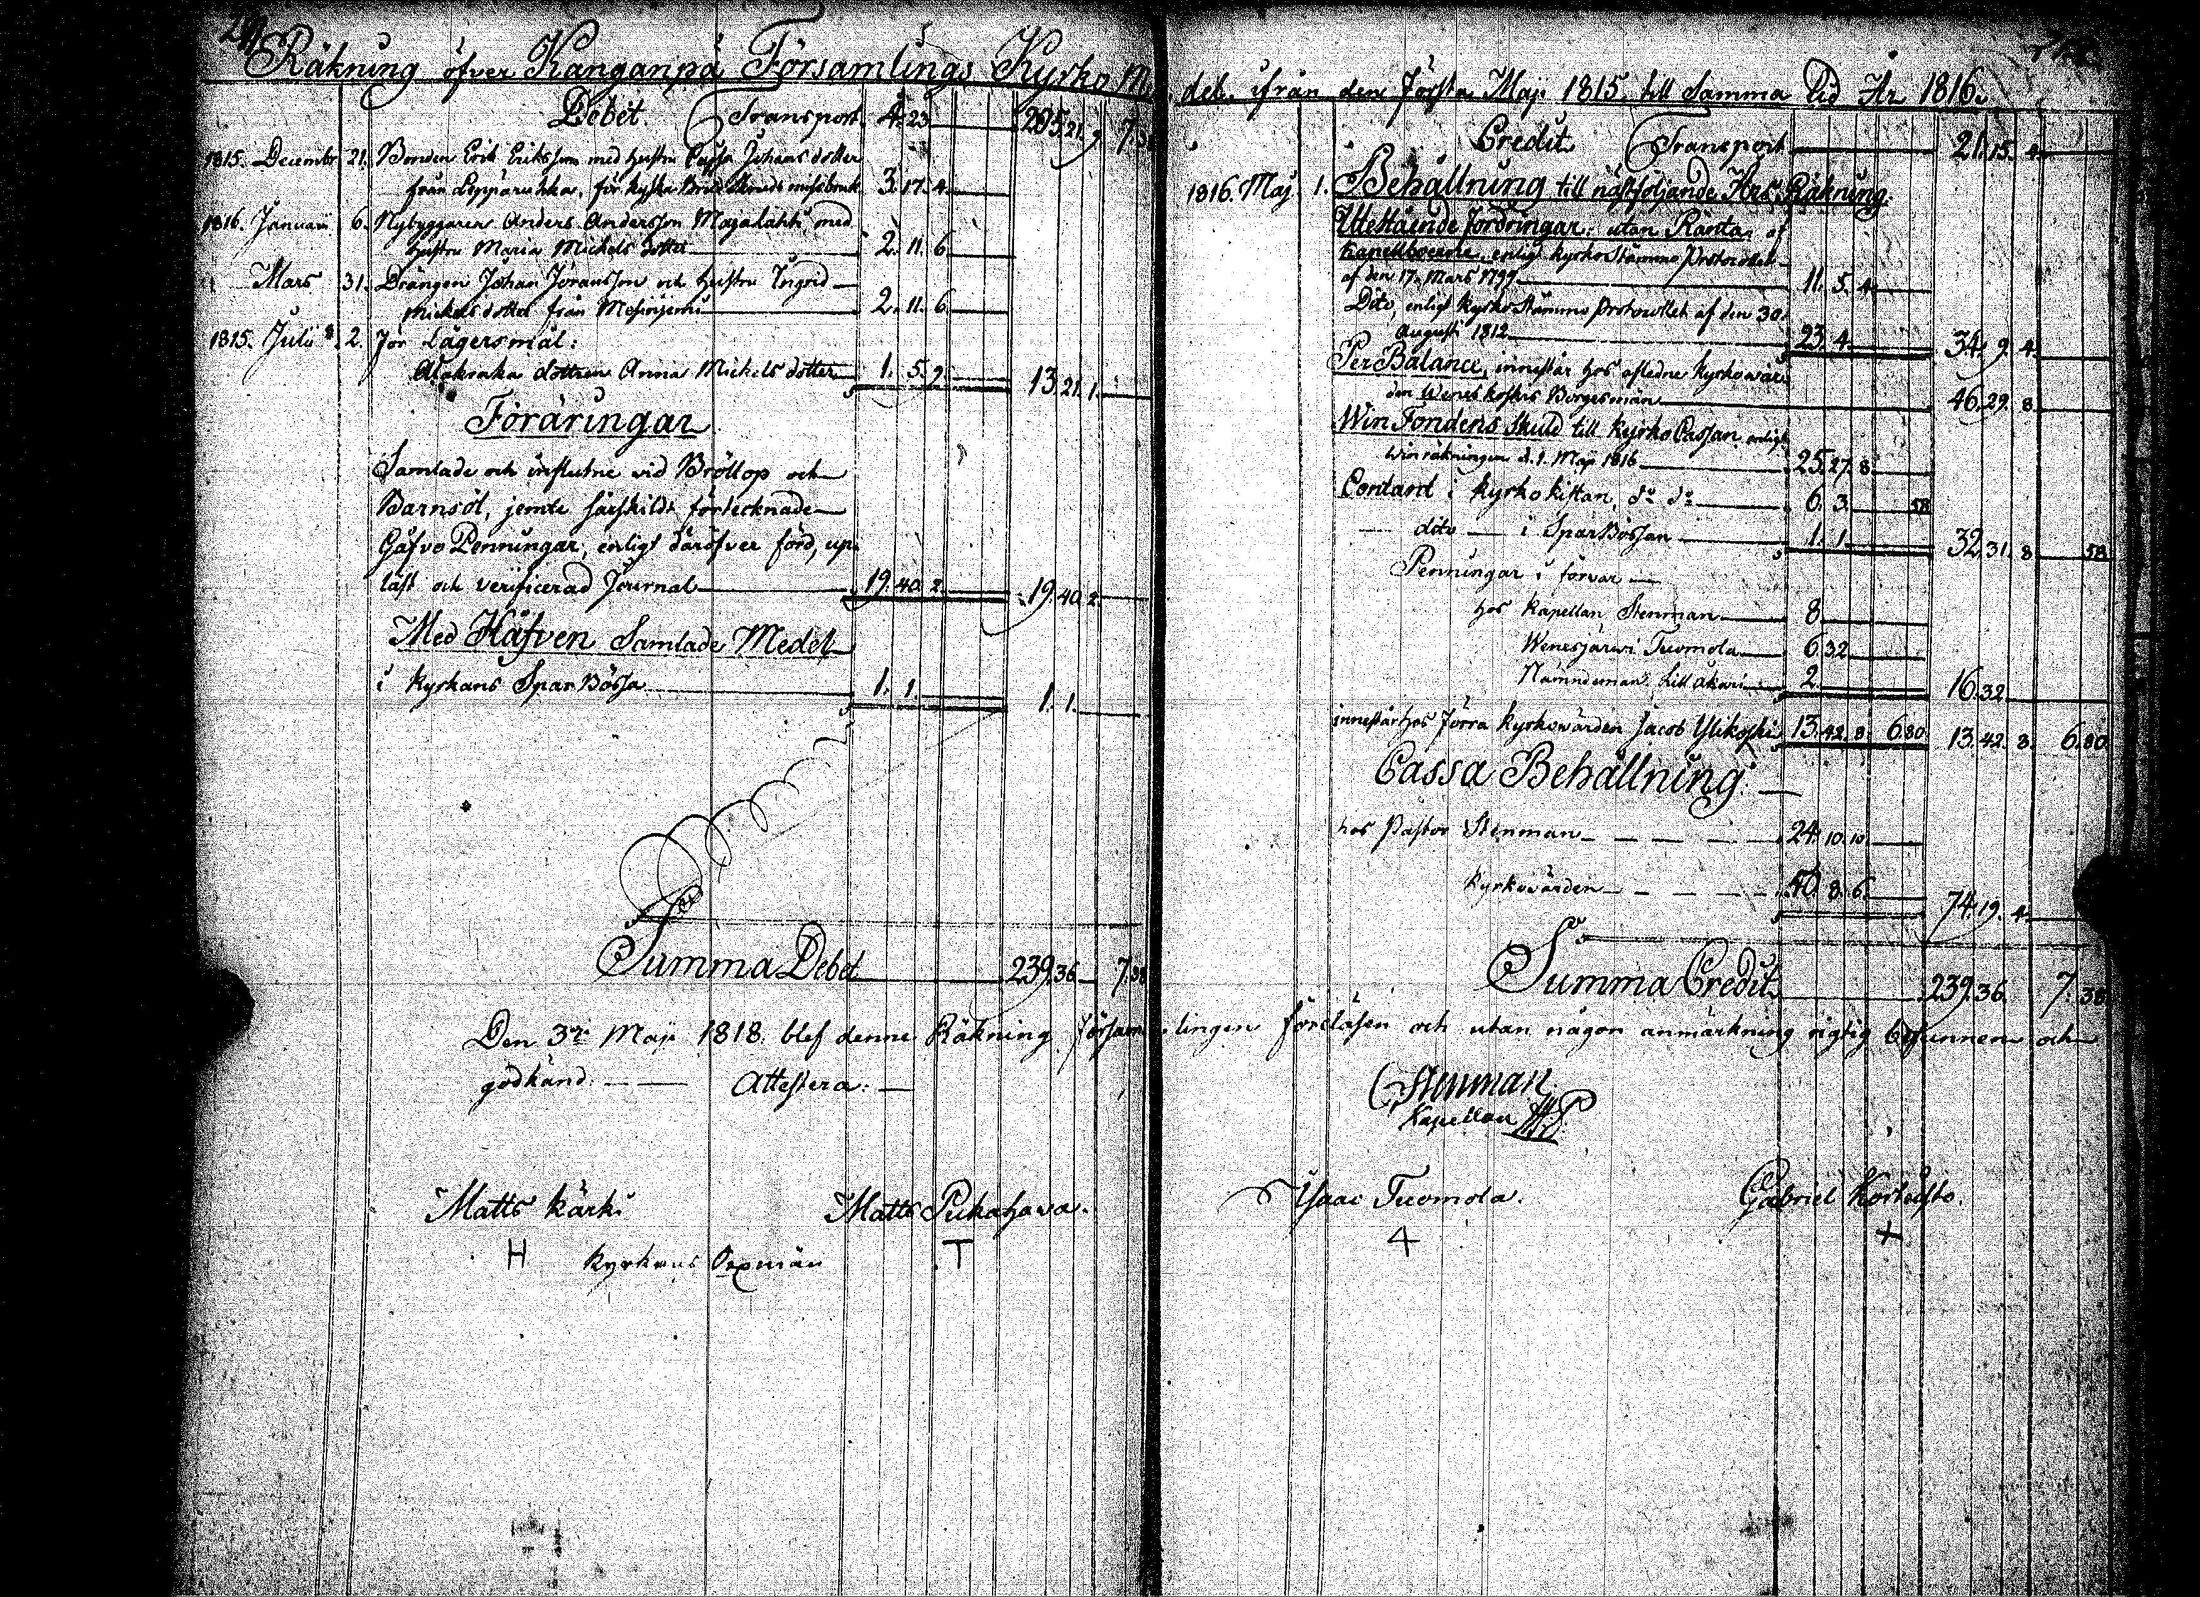 Räkning öfver Kanganpä Församlings Kyrko Me
Debet. Transport 4. 23. 205. 21. 9. 7. 38
1815. Decembr 21. Bonden Erik Eriksson med hustru Caisa Johans dotter
från Leppäruhka, för kyska Brud Skruds missbruk 3. 17. 4.
1816. Januarii 6. Nybyggaren Anders Andersson Majalahti med
hustru Maria Michels dotter 2. 11. 6
Mars 31. Drängen Johan Joransson och hustru Ingrid
Mickels dotter från 2. 11. 6
1815. Julii 2. För Lägersmål:
dottren Anna Michels dotter 1. 5. 9. 13. 21. 1.
Föräringar
Samlade och influtne vid Bröllop och
Barnsöl, jemte särskildt förtecknade
Gåfvo Penningar, enligt däröfver förd, up
läst och verificerad Journal 19. 40. 2. 19. 40. 2.
Med Håfven Samlade Medel
i Kyrkans Spar Bössa 1. 1. 1. 1.
Summa Debet 239. 36 7. 38
Den 3de Maji 1818. blef denne Räkning församlingen föreläsen och utan någon anmärkning rigtig befunnen och
godkänd. Attestera:
Matts Kärki Matts Pukahava.
H Kyrkans Sexmän T
del. ifrån den Första Maji 1815. till Samma Tid År 1816.
Credit Transport 21. 15. 4
1816. Maj. 1. Behållning till nästföljande Års Räkning.
Utestående fordringar: utan Ränta af
Kapellboerne, enligt Kyrko Stämmo Protocollet
af den 17. Mars 1799 11. 5. 4.
Dito, enligt Kyrko Stämmo Protocollet af den 30.
Augusti 1812 23. 4. 34. 9. 4.
Per Balance, innestår hos afledne Kyrkowär
den Weneskoskis Borgesmän 46. 29. 8.
Win Fondens Skuld till Kyrko Cassan enligt
Winräkningen d. 1. Maji 1816 25. 27. 8.
Contant i Kyrko Kistan, do do 6. 3. 58
dito i SparBössan 1. 1. 32. 31. 8 58
Penningar i förvar
hos Kapellan Stenman 8
Wenesjärvi Tuomola 6. 32
Nämndeman 2. 16. 32.
innestår hos förra Kyrkowärden Jacob Ylikoski 13. 42. 8. 6. 80. 13. 42. 8. 6. 80
Cassa Behållning:
hos Pastor Stenman 24. 10. 10.
Kyrkovärden 50. 8. 6. 74. 19. 4.
Summa Credit 239. 36. 7. 38
Stenman
Kapellan
Isaac Tuomola. Gabriel
4 +